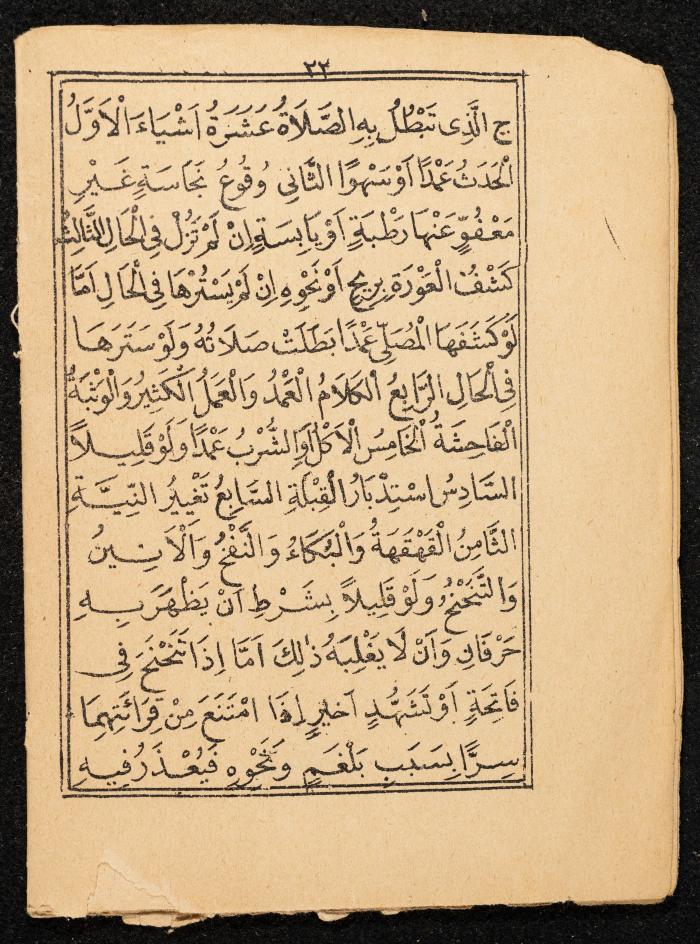 ٢٢
ج الَّذِى تَبْطُلُ بِهِ الصَّلَاةُ عَشَرَةُ اَشْيَاءَ الْاَوَّلُ
الْحَدَثُ عَمْدًا اَوْ سَهْوًا الثَّانِى وُقُوعُ نَجَاسَةٍ غَيْرِ
مَعْفُوٍّ عَنْهَا رَطْبَةٍ اَوْ يَابِسَةٍ اِنْ لَمْ تَزُلْ فِى الْحَالِ الثَّالِثُ
كَشْفُ الْعَوْرَةِ بِرِيحٍ اَوْ نَحْوِهِ اِنْ لَمْ يَسْتُرْهَا فِى الْحَالِ اَمَّا
لَوْ كَشَفَهَا الْمُصَلِّى عَمْدًا بَطَلَتْ صَلَاتُهُ وَلَوْ سَتَرَهَا
فِى الْحَالِ الرَّابِعُ الْكَلَامُ الْعَمْدُ وَالْعَمَلُ الْكَثِيرُ وَالْوَثْبَةُ
الْفَاحِشَةُ الْخَامِسُ الْاَكْلُ اَوِ الشُّرْبُ عَمْدًا وَلَوْ قَلِيلاً
السَّادِسُ اسْتِدْبَارُ الْقِبْلَةِ السَّابِعُ تَغْيِيرُ النِّيَّةِ
الثَّامِنُ الْقَهْقَهَةُ وَالْبُكَاءُ وَالنَّفْخُ وَالْاَنِينُ
وَالتَّنَحْنُحُ وَلَوْ قَلِيلاً بِشَرْطِ اَنْ يَظْهَرَ بِهِ
حَرْفَانِ وَاَنْ لَا يَغْلِبَهُ ذٰلِكَ اَمَّا اِذَا تَنَحْنَحَ فِى
فَاتِحَةٍ اَوْ تَشَهُّدٍ اَخِيرٍ اِذَا امْتَنَعَ مِنْ قِرَائَتِهِمَا
سِرًّا بِسَبَبِ بَلْغَمٍ وَنَحْوِهِ فَيُعْذَرُ فِيهِ